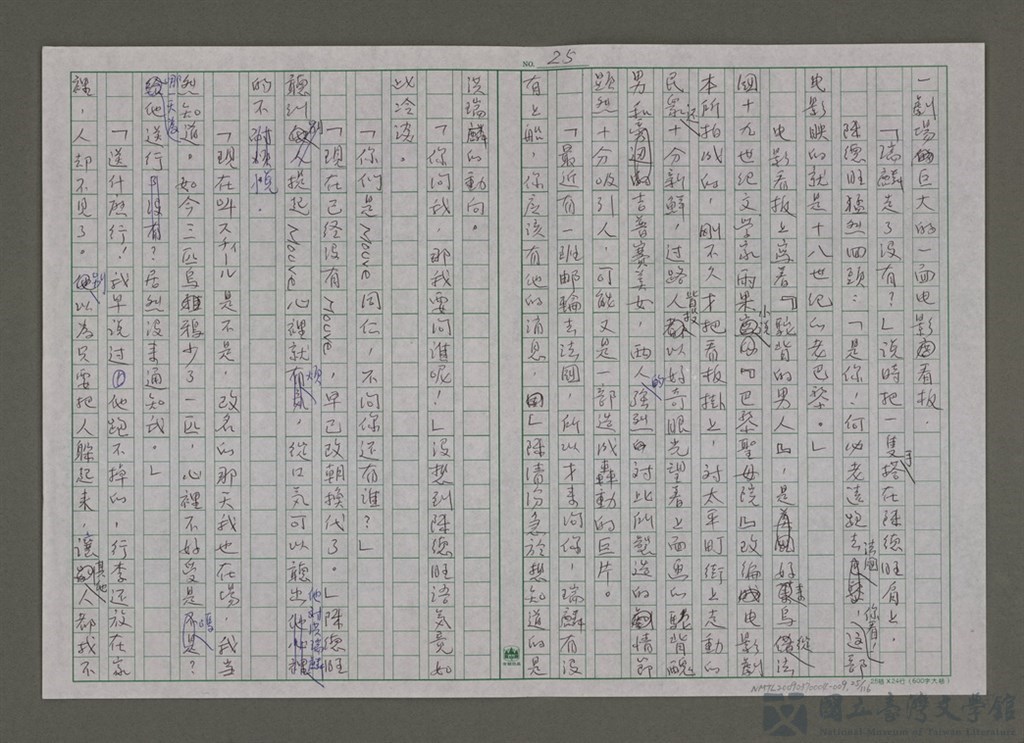 NO. 25
一劇場的巨大的一面电影看板.
「瑞麟走了沒有?」說時把一隻手搭在陳德旺肩上,
陳德旺猛烈回頭:「是你!何必老遠跑去法國,你看,这部
电影映的就是十八世纪的老巴黎。」
电影看板上寫着『駝背的男人』,是好萊烏從法
國十九世纪文学家雨果小说『巴黎聖母院』改編电影劇
本所拍成的,剛不久才把看板掛上,对太平町街上走動的
民眾还十分新鮮,过路人皆投以好奇眼光望着上面画的駝背醜
男和吉普賽美女,兩人的強烈对比所製造的情節
顯然十分吸引人,可能又是一部造成轟動的巨片。
「最近有一班邮輪去法國,所以才来问你,瑞麟有没
有上船,你应该有他的消息,」陳清汾急於想知道的是
洪瑞麟的動向。
「你问我,那我要问誰呢!」沒想到陳德旺語気竟如
此冷淡。
「你们是Mouve同仁,不问你还有誰?」
「現在己经没有Mouve,早已改朝換代了。」陳德旺
聽到別人提起Mouve心裡就煩,從口気可以聽出他对洪瑞麟
的不
「現在叫スチール是不是,改名的那天我也在場,我当
然知道。如今三匹烏鴉少了一匹,心裡不好受是嗎?
哪一天為他送行?居然没来通知我。」
「送什麽行!我早说过他跑不掉的,行李还放在家
裡,人却不見了。別以為只要把人躲起来,讓其他人都找不
25格×24行(600字大槁)
NMTL20092370008-009.25/116
國立臺灣文學館
National Museum of Taiwan Literature